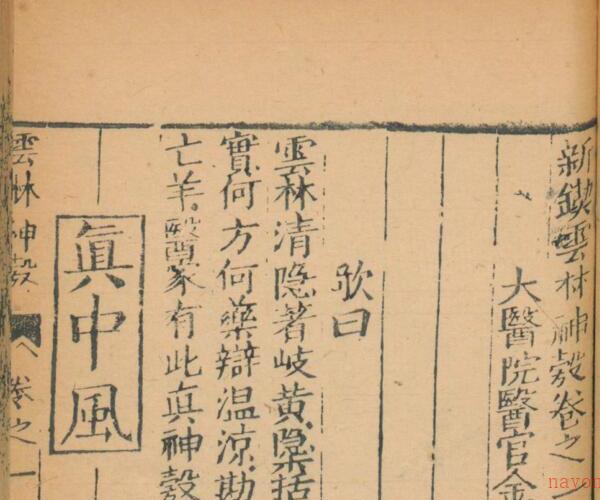 新鍥雲林神彀卷之
大醫院醫官金
歌曰
雲林清隐著岐黄檃括
實何方何藥辯温凉勘
亡羊醫家有此眞神彀
眞中風
雲林神彀 卷之一
navop